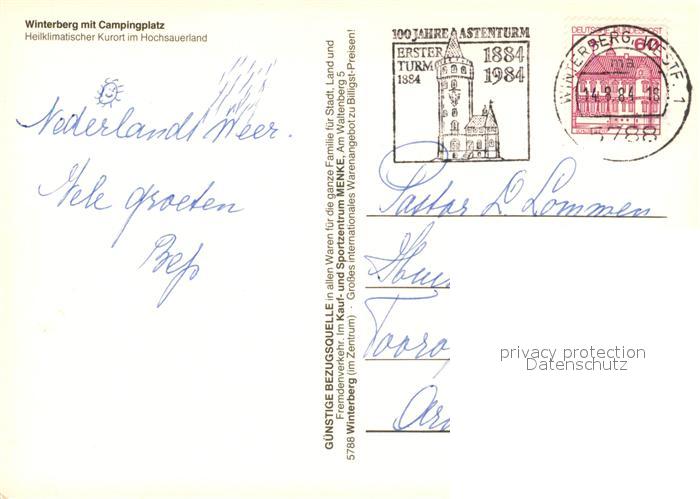 Winterberg mit Campingplatz
Heilklimatischer Kurort im Hochsauerland
Nederlands Weer.
Vele groeten
Bep
GÜNSTIGE BEZUGSQUELLE in allen Waren für die ganze Familie für Stadt, Land und
Fremdenverkehr. Im Kauf- und Sportzentrum MENKE, Am Waltenberg 5
5788 Winterberg (im Zentrum) · Großes internationales Warenangebot zu Billigst-Preisen!
100 JAHRE ASTENTURM
ERSTER
TURM
1884
1884
1984
DEUTSCHE BUNDESPOST
60
WINTERBERG, WESTF. 1
ma
14.9.84-16
5788
Pastor L Lommen
privacy protection
Datenschutz